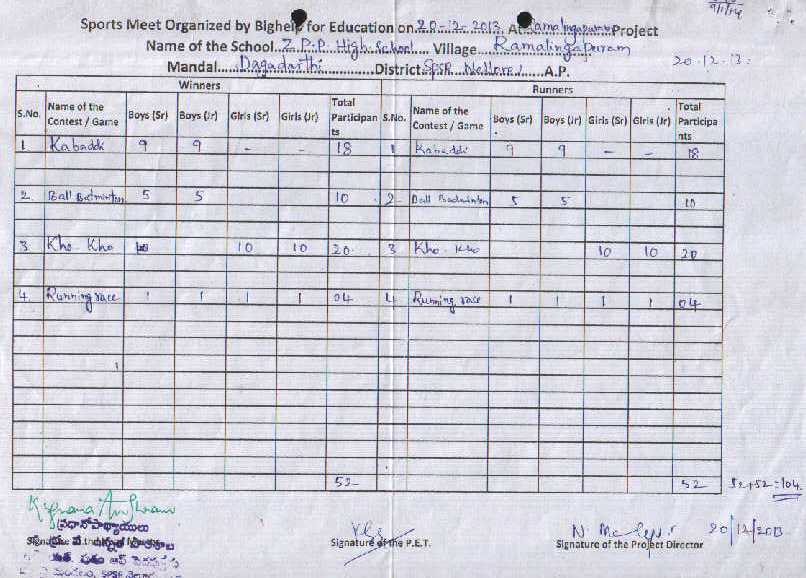 9/1/14
Sports Meet Organized by Bighelp for Education on 20-12-2013 At Ramalingapuram Project
Name of the School Z.P.P. High School Village Ramalingapuram
20.12.13.
Mandal Dagadarthi District SPSR Nellore A.P.
Winners Runners
S.No. Name of the Contest / Game Boys (Sr) Boys (Jr) Girls (Sr) Girls (Jr) Total Participants S.No. Name of the Contest / Game Boys (Sr) Boys (Jr) Girls (Sr) Girls (Jr) Total Participants
1 Kabaddi 9 9 - - 18 1 Kabaddi 9 9 - - 18
2. Ball Badminton 5 5 10 2. Ball Badminton 5 5 10
3 Kho-Kho 10 10 20 3 Kho-Kho 10 10 20
4. Running race 1 1 1 1 04 4 Running race 1 1 1 1 04
52 52 52+52=104
20/12/2013
ప్రధానోపాధ్యాయులు
Signature of the P.E.T. Signature of the Project Director